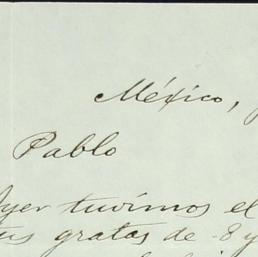 México,
Pablo
Ayer tuvimos el
tus gratas de 8 y